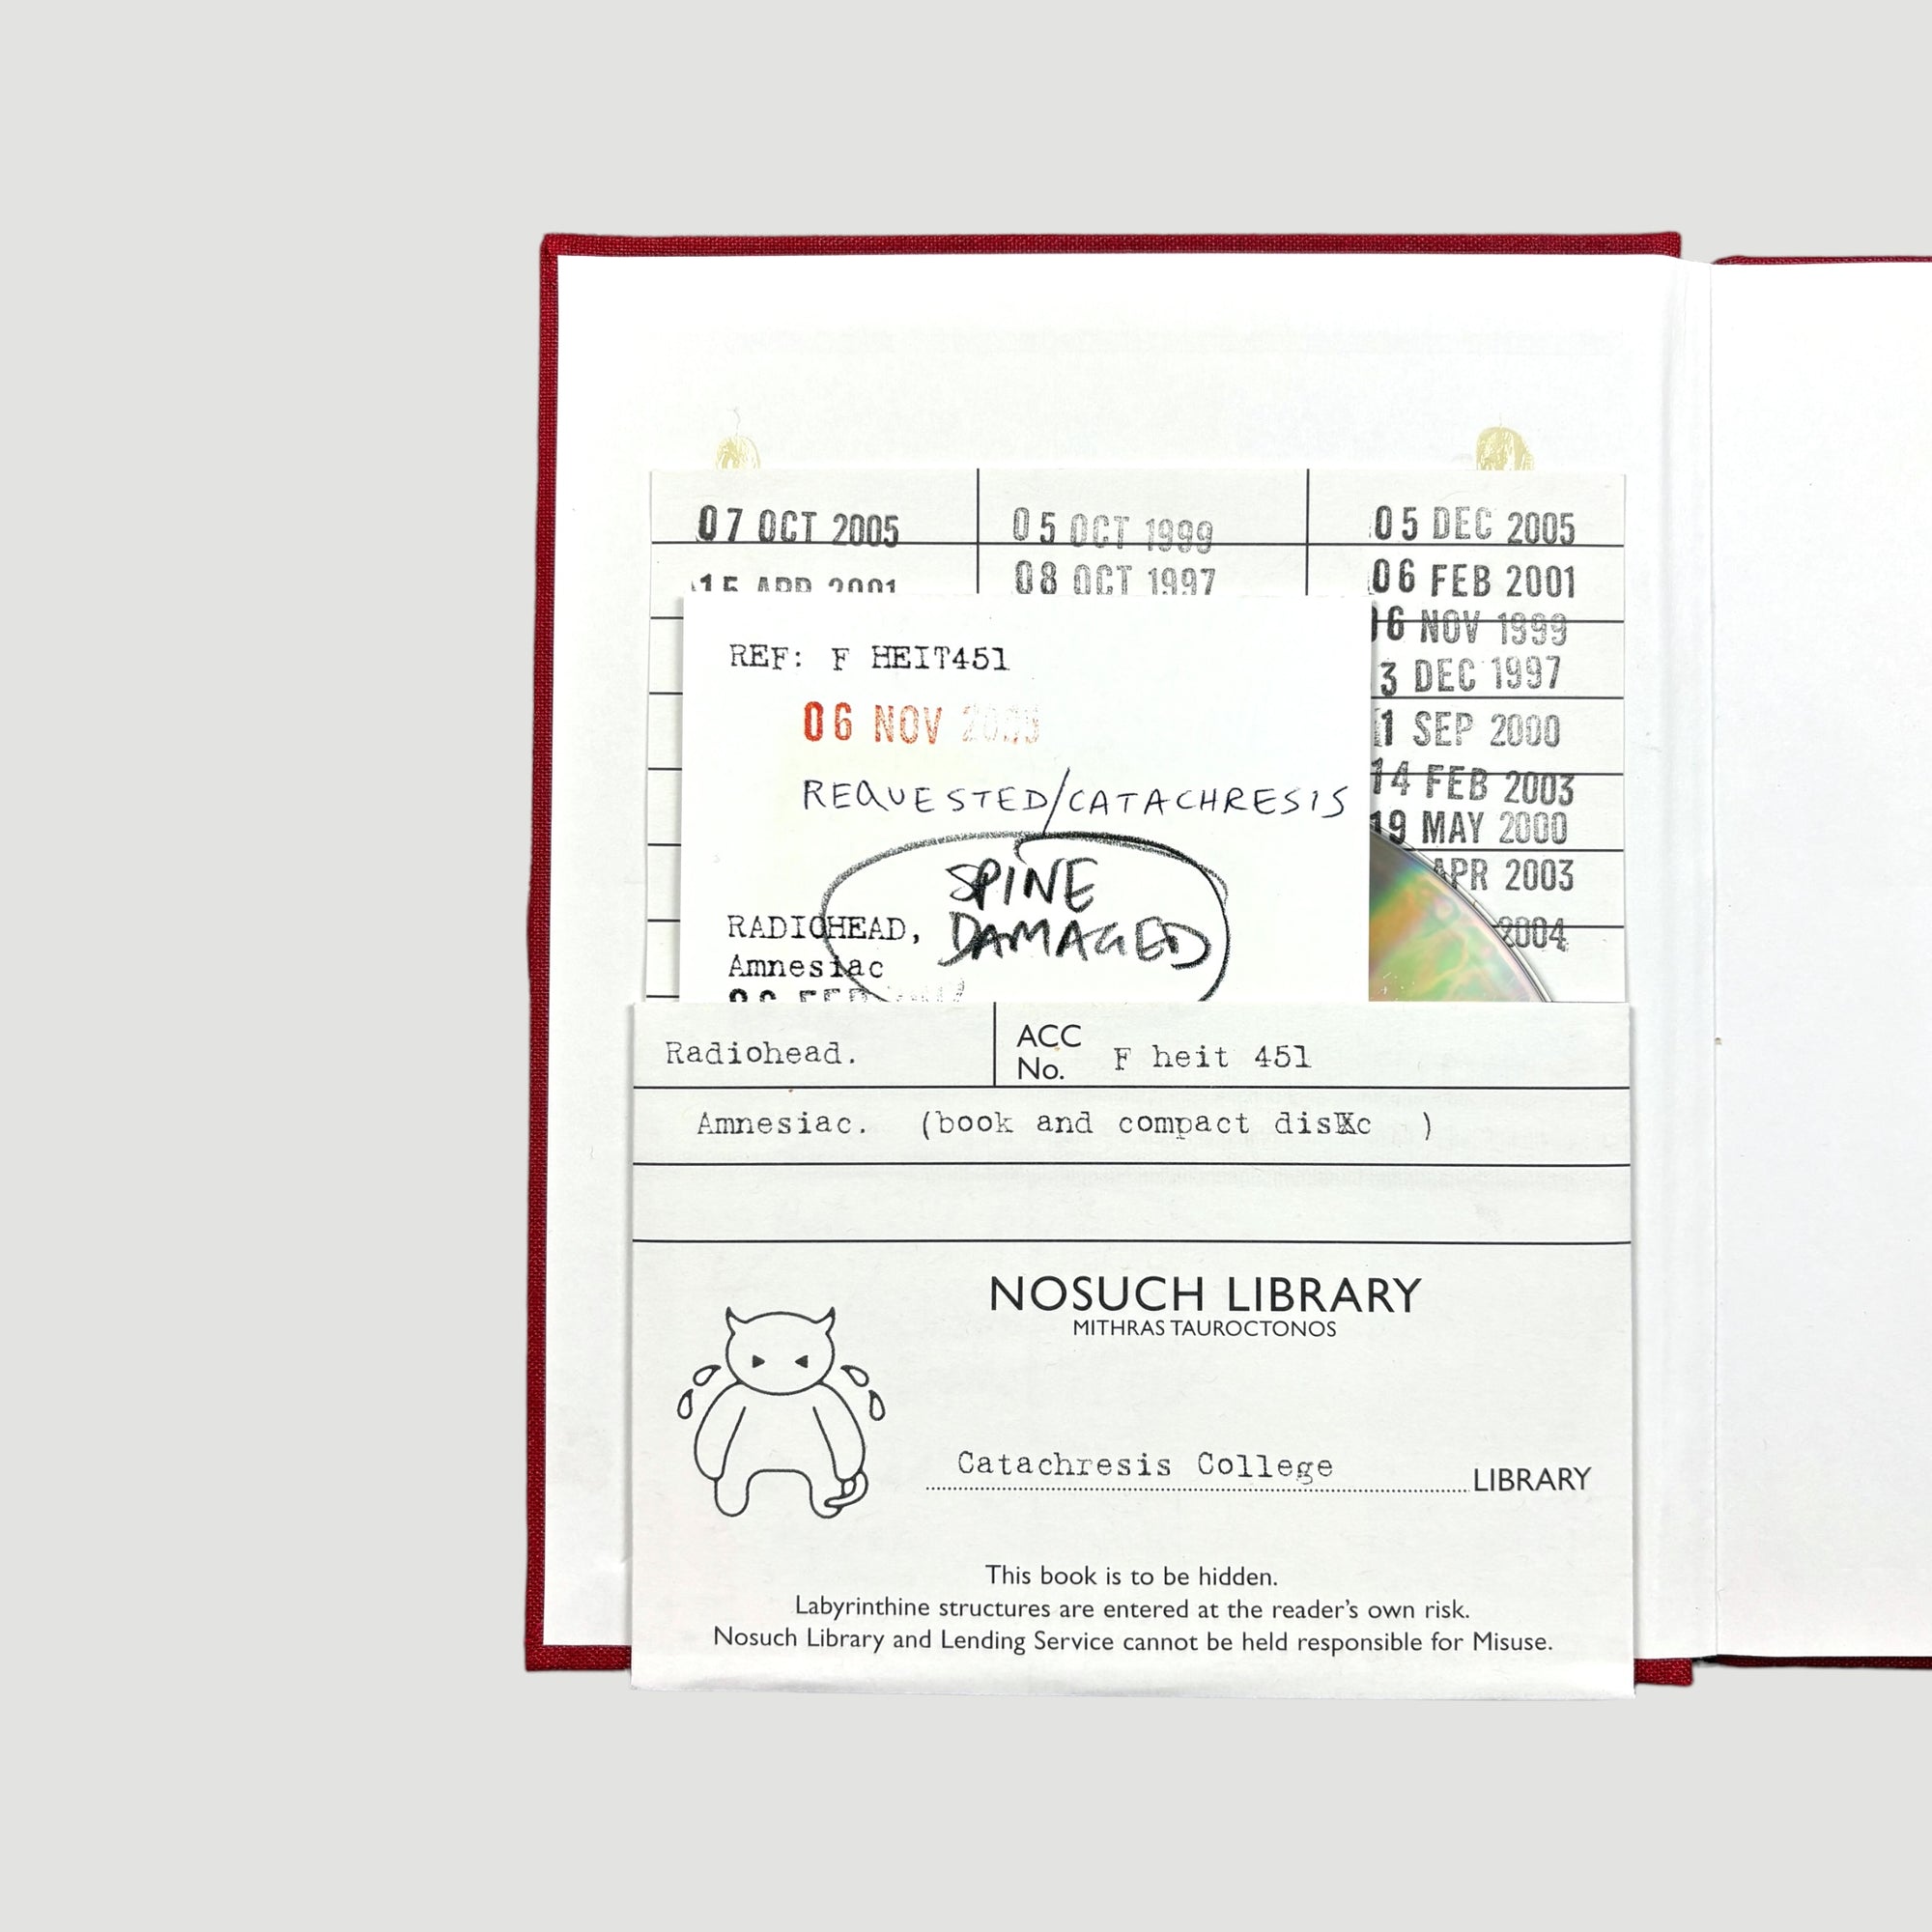 07 OCT 2005
05 OCT 1999
05 DEC 2005
15 APR 2001
08 OCT 1997
06 FEB 2001
6 NOV 1999
3 DEC 1997
1 SEP 2000
14 FEB 2003
19 MAY 2000
APR 2003
2004
REF: F HEIT451
06 NOV
REQUESTED/CATACHRESIS
SPINE
DAMAGED
RADIOHEAD,
Amnesiac
Radiohead.
ACC
No. F heit 451
Amnesiac. (book and compact disc )
NOSUCH LIBRARY
MITHRAS TAUROCTONOS
Catachresis College LIBRARY
This book is to be hidden.
Labyrinthine structures are entered at the reader's own risk.
Nosuch Library and Lending Service cannot be held responsible for Misuse.